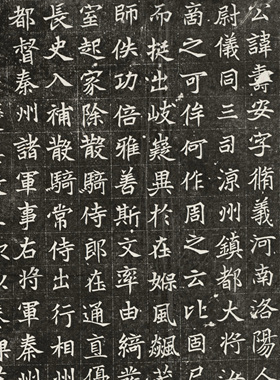 公諱壽安字脩義河南洛陽人
尉儀同三司涼州鎮都大將汝
商之可侔何作周之云比固
而挺出岐嶷異於在娰風飆
師佚功倍雅善斯文率由綺
室起家除散騎侍郎在通直優
長史入補散騎常侍出行相州
都督秦州諸軍事右將軍秦州